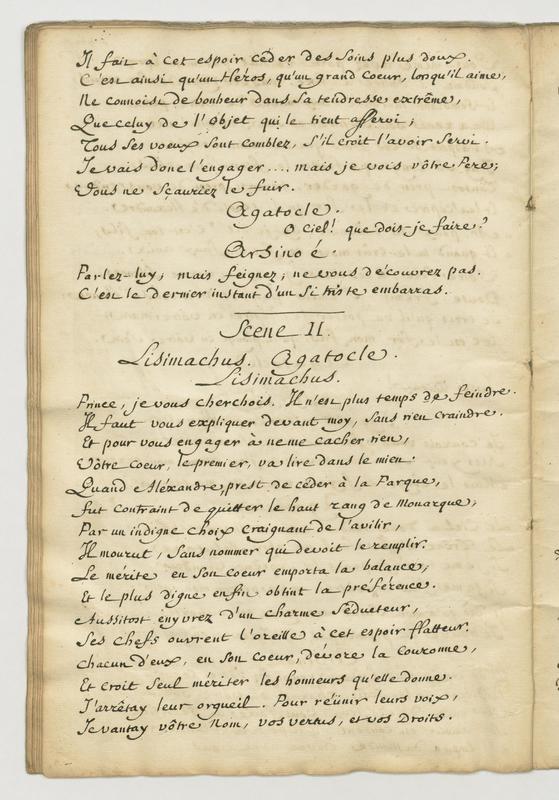 Il fait à cet espoir céder des soins plus doux.
C'est ainsi qu'un Héros, qu'un grand Coeur, lorsqu'il aime,
Ne connoist de bonheur dans sa tendresse extrême,
Que celuy de l'Objet qui le tient asservi;
Tous ses voeux sont comblez, s'il croit l'avoir servi.
Je vais donc l'engager .... mais je vois vôtre Pere;
Vous ne sçauriez le fuir.
Agatocle.
O Ciel! que dois-je faire?
Arsinoé.
Parlez-luy; mais feignez; ne vous découvrez pas.
C'est le dernier instant d'un si triste embarras.
Scene II.
Lisimachus. Agatocle.
Lisimachus.
Prince, je vous cherchois. Il n'est plus temps de feindre.
Il faut vous expliquer devant moy, sans rien craindre.
Et pour vous engager à ne me cacher rien,
Vôtre Coeur, le premier, va lire dans le mien.
Quand Aléxandre, prest de céder à la Parque,
fut contraint de quitter le haut rang de Monarque;
Par un indigne choix craignant de l'avilir,
Il mourut, sans nommer qui devoit le remplir.
Le mérite en son coeur emporta la balance,
Et le plus digne enfin obtint la préférence.
Aussitost enyvrez d'un charme séducteur,
Ses chefs ouvrent l'oreille à cet espoir flatteur.
Chacun d'eux, en son Coeur, dévore la Couronne,
Et croit seul mériter les honneurs qu'elle donne.
J'arrêtay leur orgueil. Pour réünir leurs voix,
Je vantay vôtre Nom, vos vertus, et vos Droits.